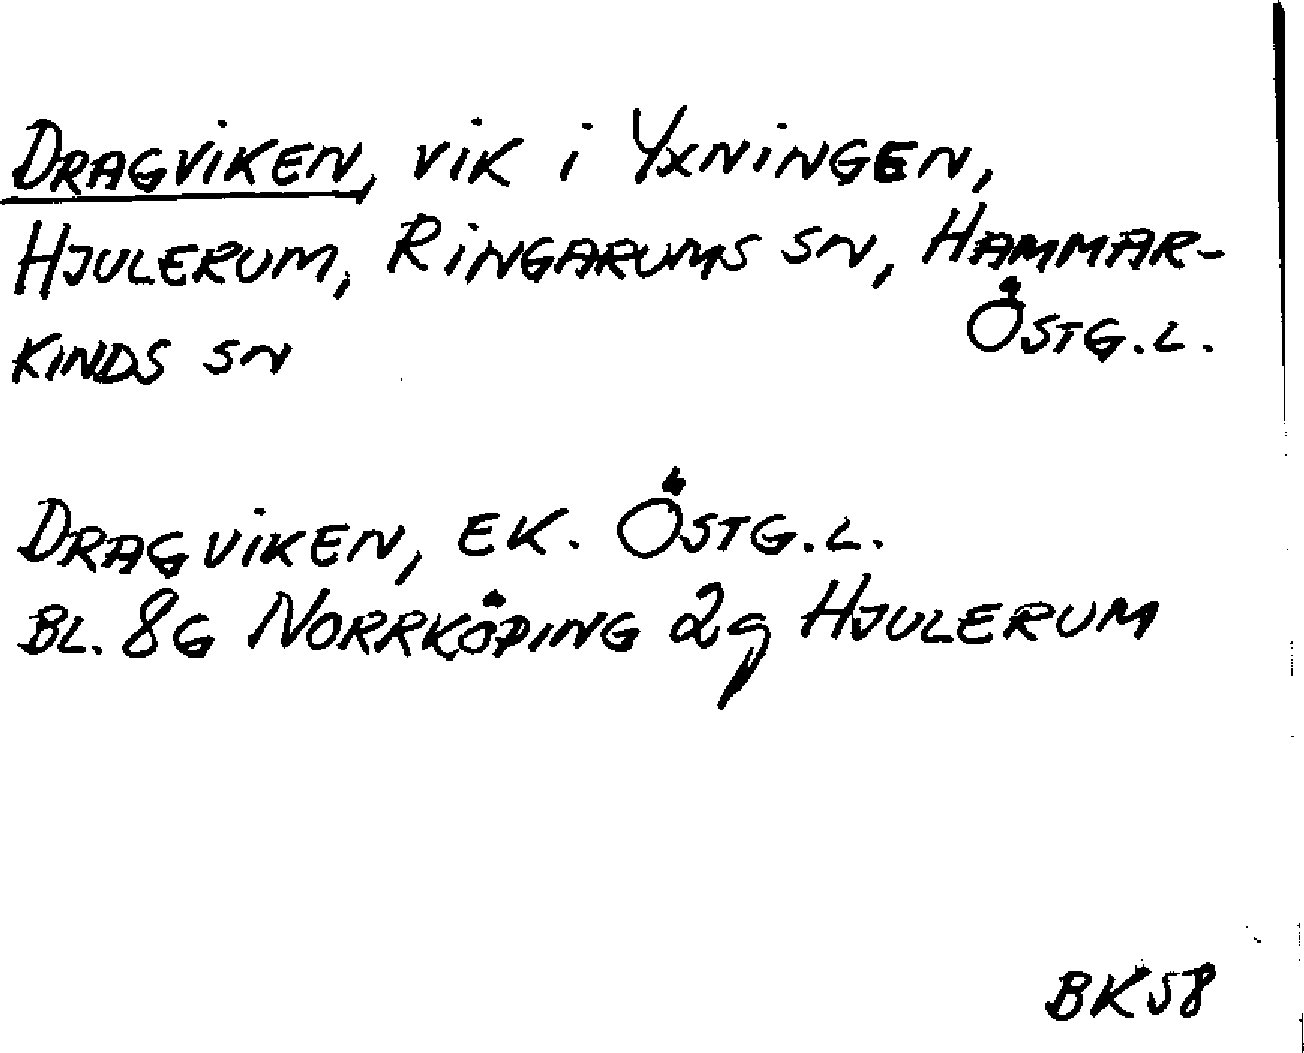 DRAGVIKEN, VIK i YXNINGEN,
HJULERUM, RINGARUMS SN, HAMMAR-
KINDS SN ÖSTG.L.
DRAGVIKEN, EK. ÖSTG.L.
BL. 8G NORRKÖPING 2g HJULERUM
BK58